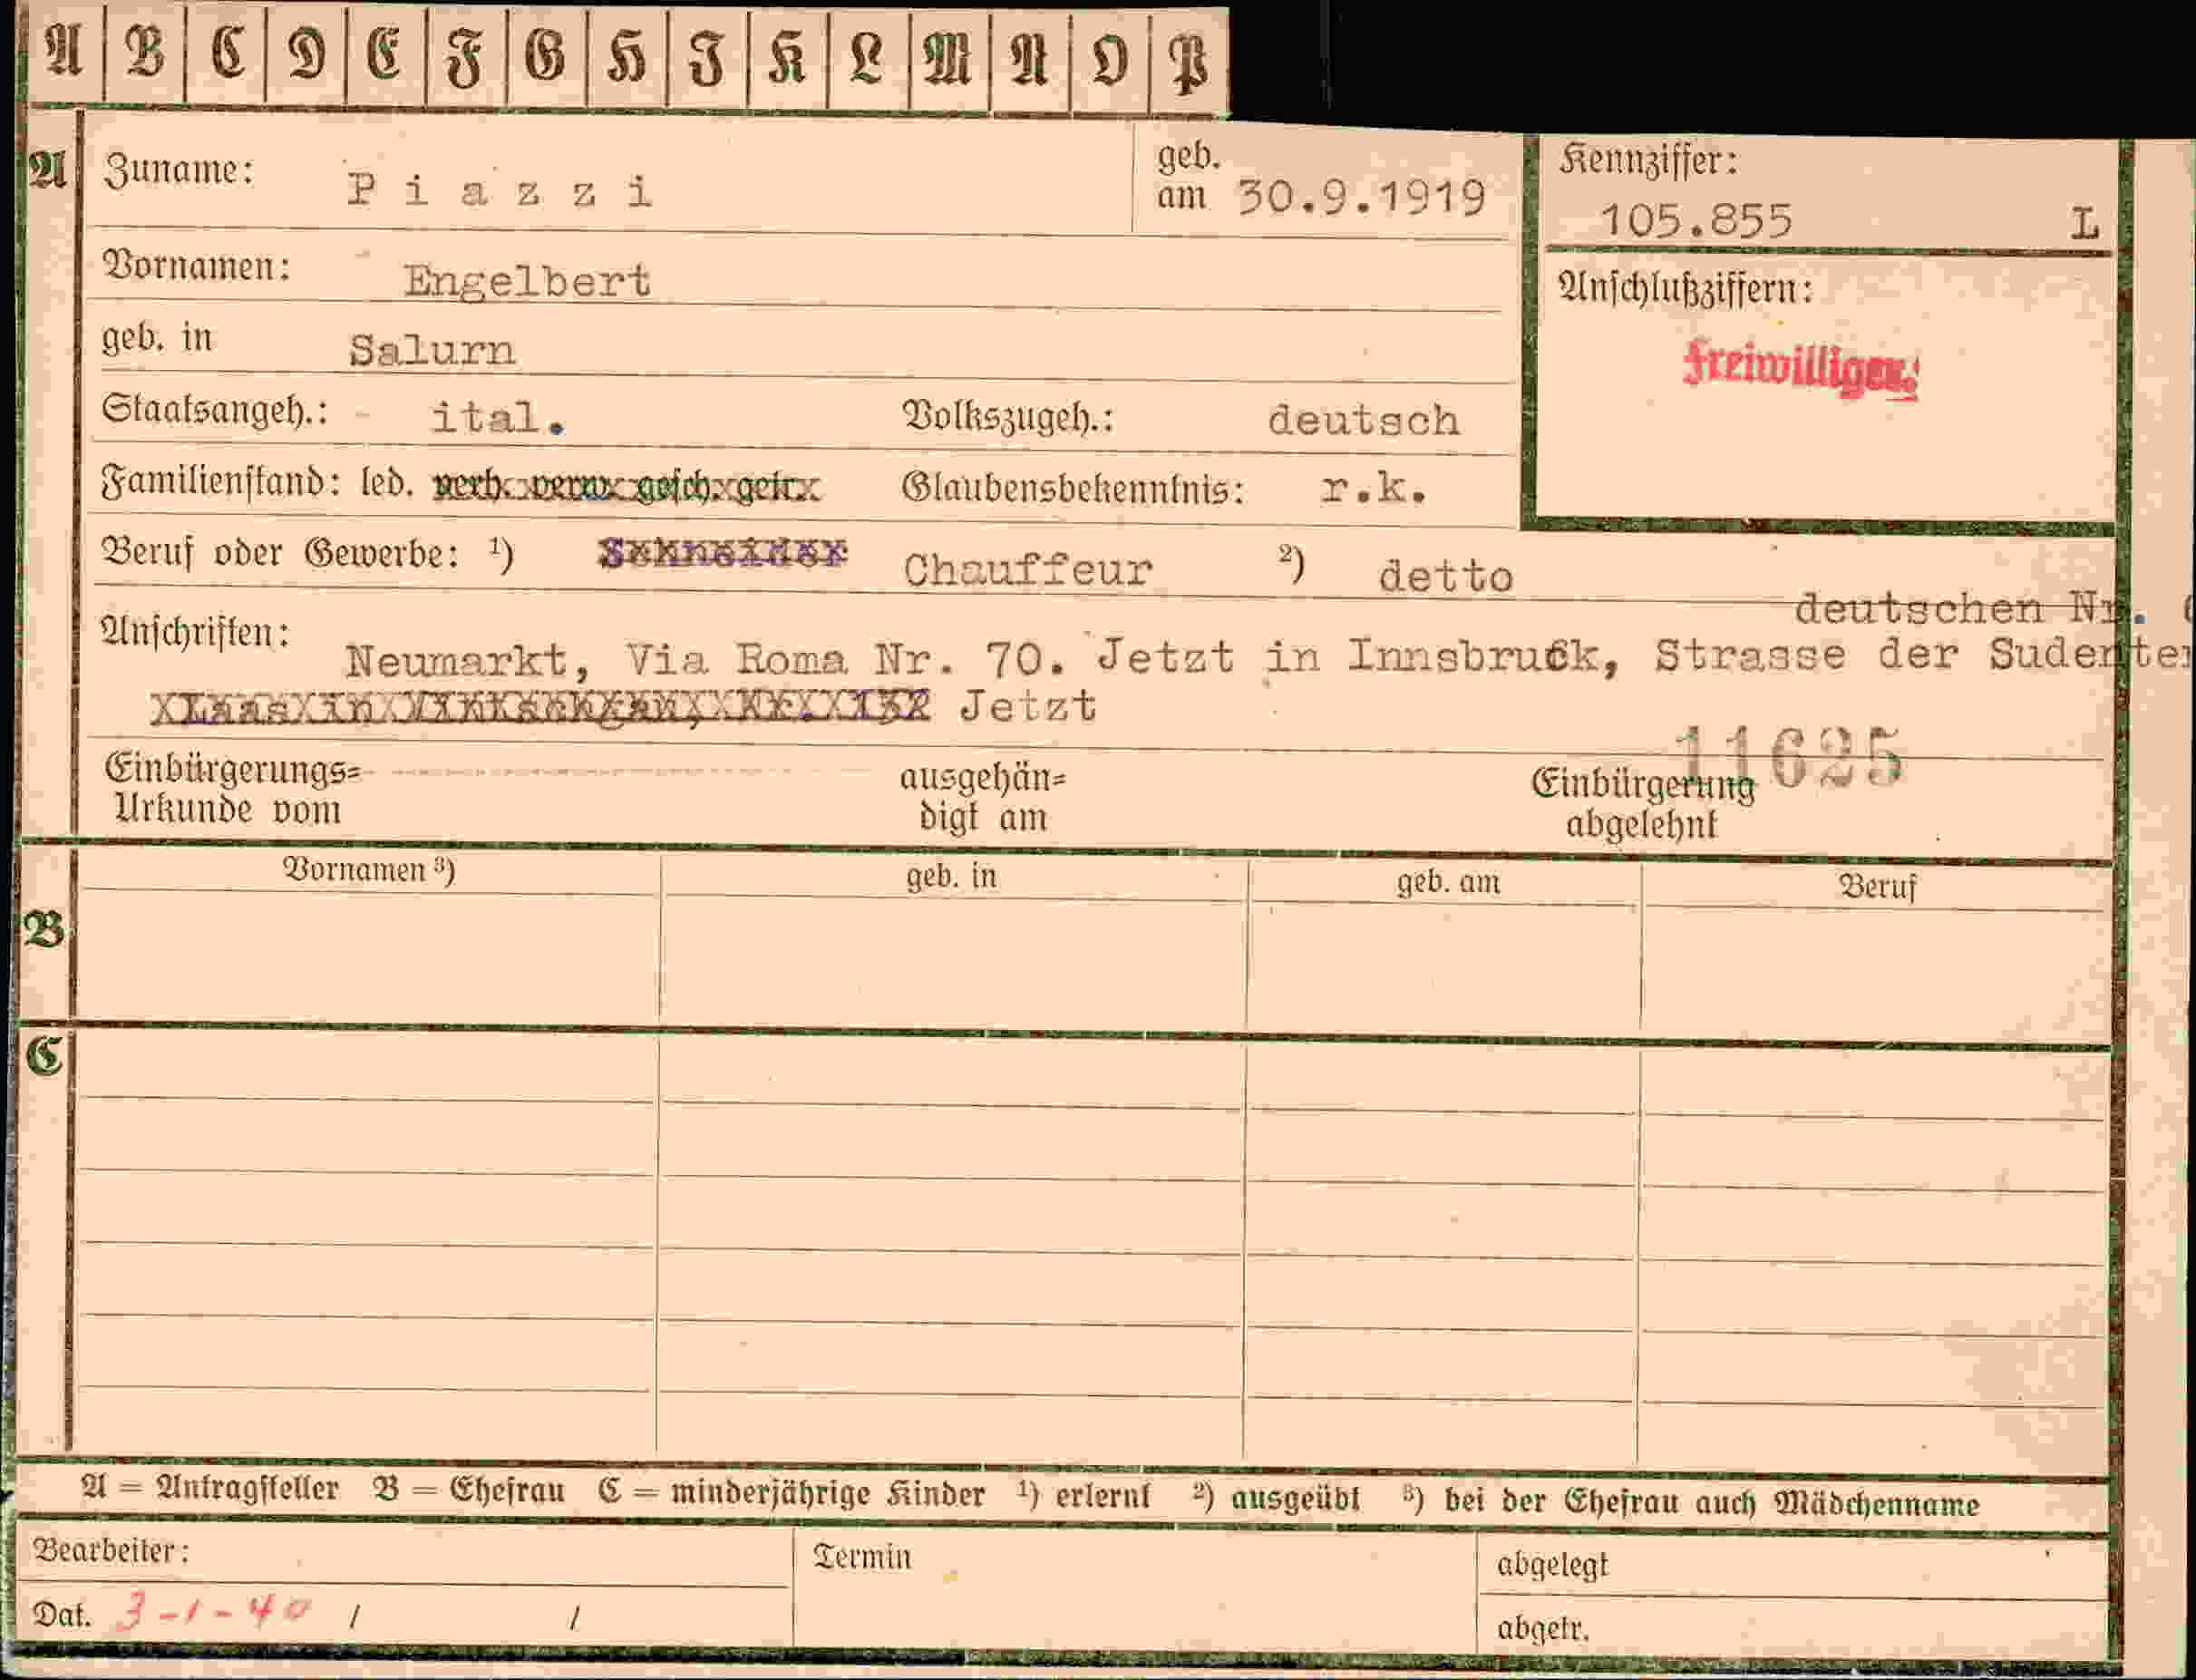 A B C D E F G H J K L M N O P
A Zuname: Piazzi geb. am 30.9.1919 Kennziffer: 105.855 L
Vornamen: Engelbert Anschlußziffern:
Freiwilliger!
geb. in Salurn
Staatsangeh.: ital. Volkszugeh.: deutsch
Familienstand: led. verh. verw. gesch. getr. Glaubensbekenntnis: r.k.
Beruf oder Gewerbe: ¹) Schneider Chauffeur ²) detto
deutschen Nr.
Anschriften: Neumarkt, Via Roma Nr. 70. Jetzt in Innsbruck, Strasse der Sudeten
Laas in Vintschgau, Nr. 132 Jetzt
11625
Einbürgerungs= ausgehän= Einbürgerung
Urkunde vom digt am abgelehnt
Vornamen ³) geb. in geb. am Beruf
B
C
A = Antragsteller B = Ehefrau C = minderjährige Kinder ¹) erlernt ²) ausgeübt ³) bei der Ehefrau auch Mädchenname
Bearbeiter: Termin abgelegt
Dat. 3-1-40 / / abgetr.